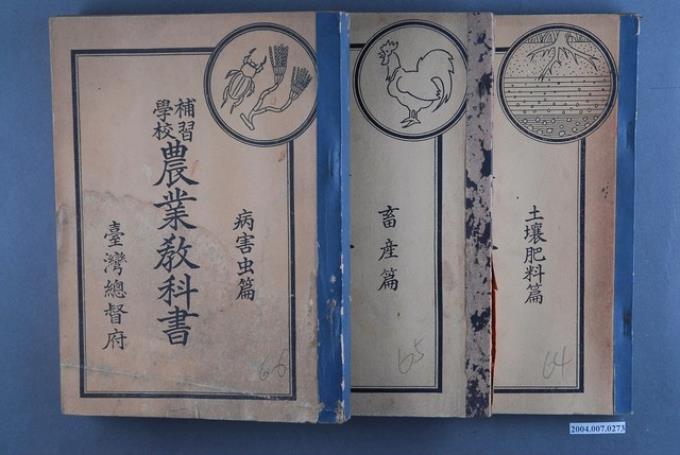 補習
學校
農業教科書
病害虫篇
臺灣總督府
68
畜産篇
65
土壤肥料篇
64
2004.007.0273